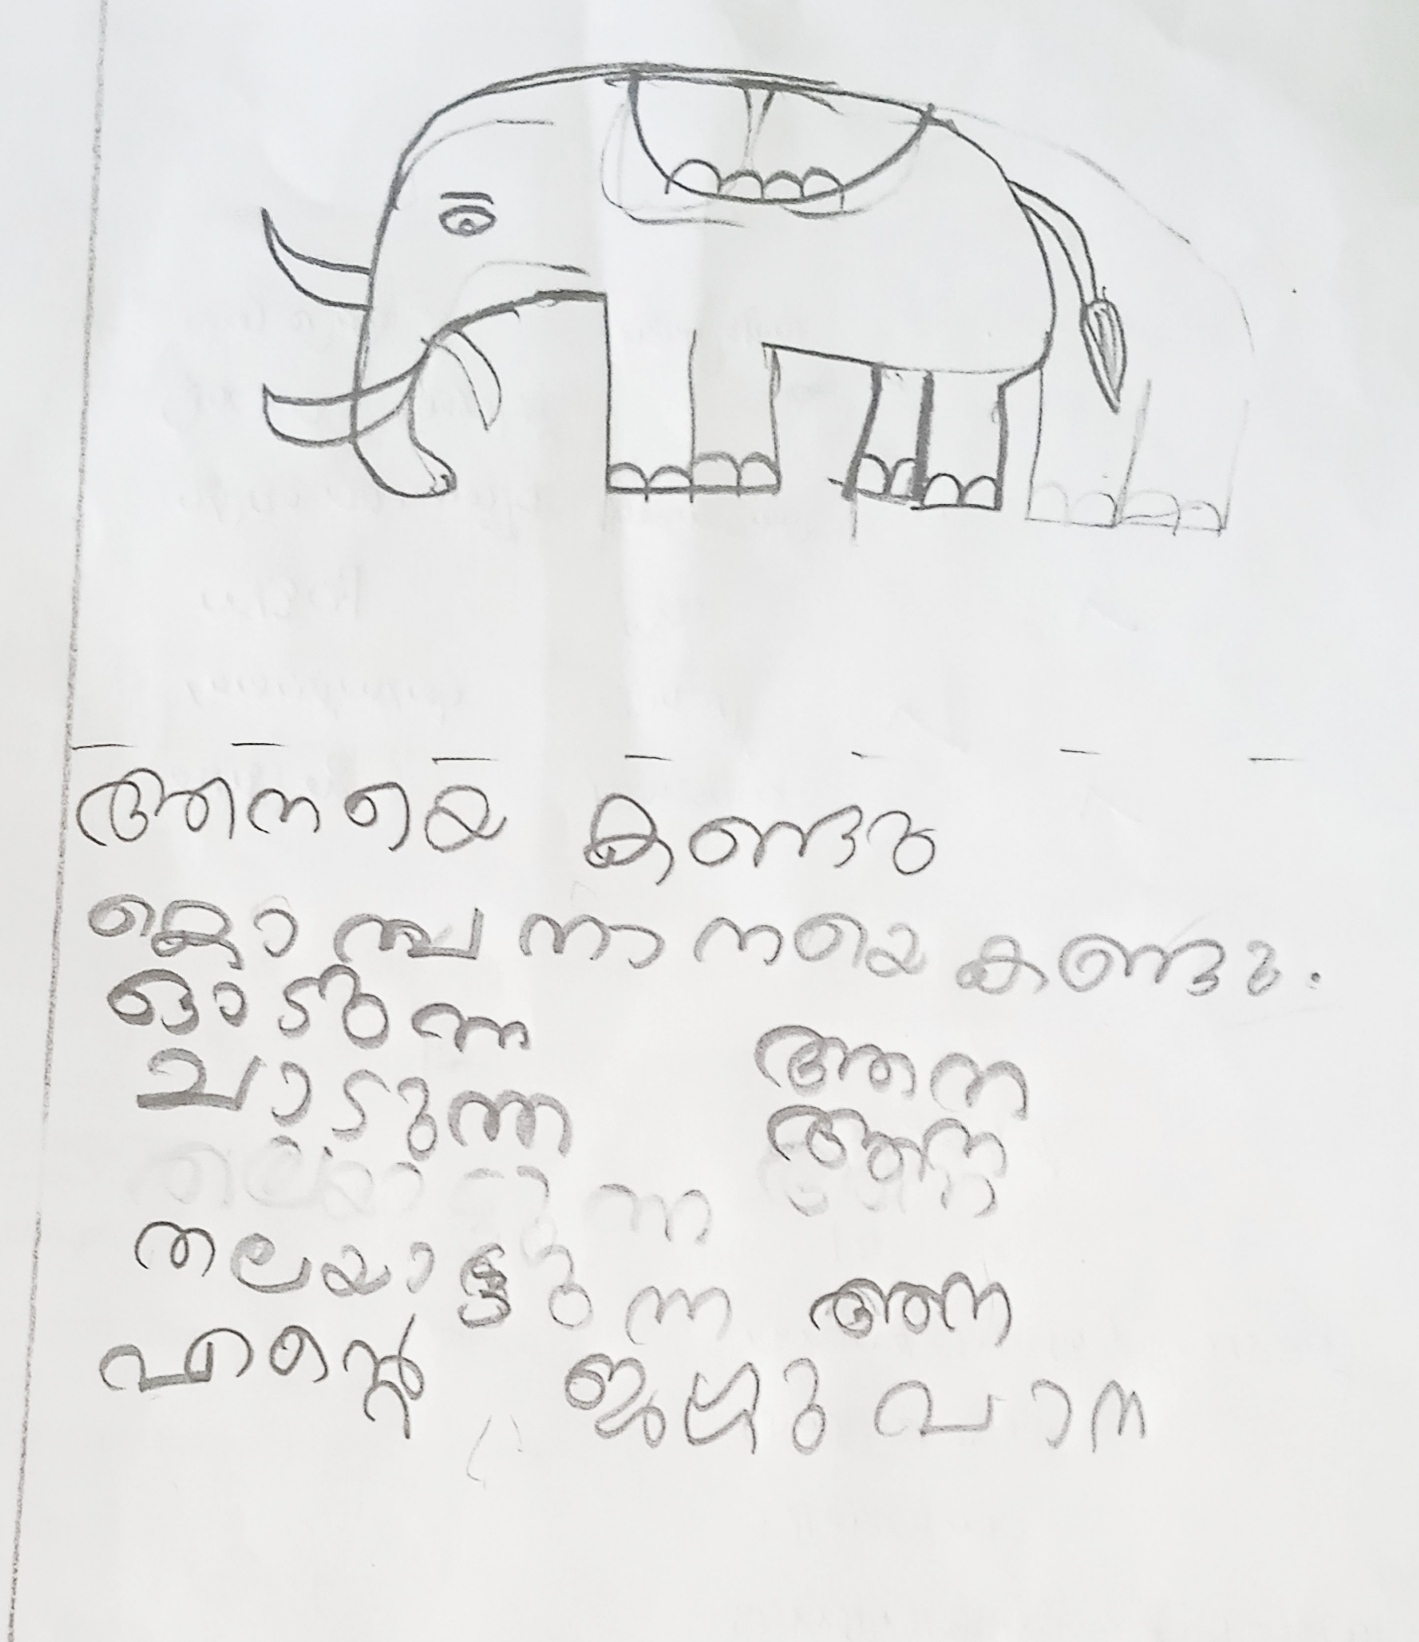 ആനയെ കണ്ടു
കൊമ്പനാനയെ കണ്ടു.
ഓടുന്ന ആന
ചാടുന്ന ആന
തലയാട്ടുന്ന ആന
എന്റെ